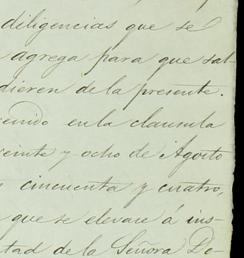 diligencias que se
agrega para que sal-
dieren de la presente.
enido en la clausula
veinte y ocho de Agosto
cincuenta y cuatro,
que se elevare á ins-
tad de la Señora Do-